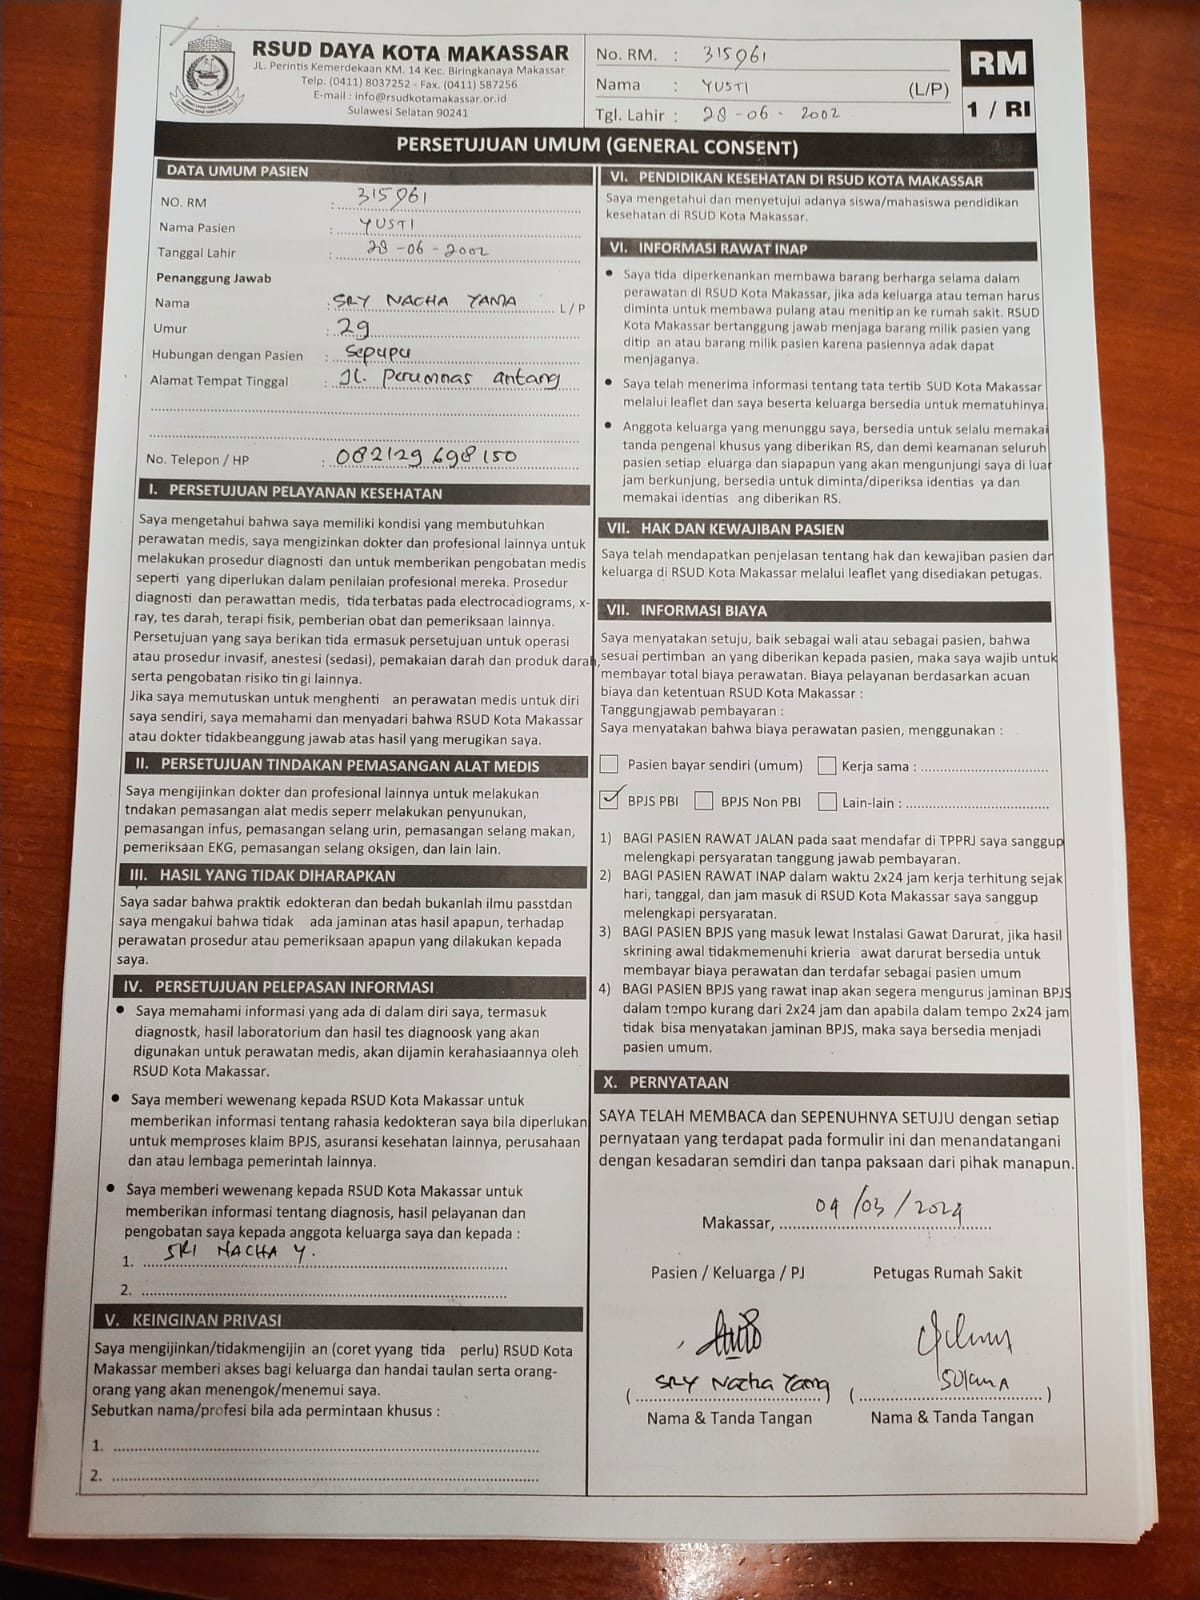 RSUD DAYA KOTA MAKASSAR
JL. Perintis Kemerdekaan KM. 14 Kec. Biringkanaya Makassar
Telp. (0411) 8037252 - Fax. (0411) 587256
E-mail : info@rsudkotamakassar.or.id
Sulawesi Selatan 90241
No. RM. : 315961
Nama : YUSTI (L/P)
Tgl. Lahir : 28-06-2002
RM
1 / RI
PERSETUJUAN UMUM (GENERAL CONSENT)
DATA UMUM PASIEN
NO. RM : 315961
Nama Pasien : YUSTI
Tanggal Lahir : 28-06-2002
Penanggung Jawab
Nama : SRY NACHA YAMA L / P
Umur : 29
Hubungan dengan Pasien : Sepupu
Alamat Tempat Tinggal : Jl. Perumnas antang
No. Telepon / HP : 082129698150
I. PERSETUJUAN PELAYANAN KESEHATAN
Saya mengetahui bahwa saya memiliki kondisi yang membutuhkan
perawatan medis, saya mengizinkan dokter dan profesional lainnya untuk
melakukan prosedur diagnosti dan untuk memberikan pengobatan medis
seperti yang diperlukan dalam penilaian profesional mereka. Prosedur
diagnosti dan perawattan medis, tida terbatas pada electrocadiograms, x-
ray, tes darah, terapi fisik, pemberian obat dan pemeriksaan lainnya.
Persetujuan yang saya berikan tida ermasuk persetujuan untuk operasi
atau prosedur invasif, anestesi (sedasi), pemakaian darah dan produk darah,
serta pengobatan risiko tin gi lainnya.
Jika saya memutuskan untuk menghenti an perawatan medis untuk diri
saya sendiri, saya memahami dan menyadari bahwa RSUD Kota Makassar
atau dokter tidakbeanggung jawab atas hasil yang merugikan saya.
II. PERSETUJUAN TINDAKAN PEMASANGAN ALAT MEDIS
Saya mengijinkan dokter dan profesional lainnya untuk melakukan
tndakan pemasangan alat medis seperr melakukan penyunukan,
pemasangan infus, pemasangan selang urin, pemasangan selang makan,
pemeriksaan EKG, pemasangan selang oksigen, dan lain lain.
III. HASIL YANG TIDAK DIHARAPKAN
Saya sadar bahwa praktik edokteran dan bedah bukanlah ilmu passtdan
saya mengakui bahwa tidak ada jaminan atas hasil apapun, terhadap
perawatan prosedur atau pemeriksaan apapun yang dilakukan kepada
saya.
IV. PERSETUJUAN PELEPASAN INFORMASI
• Saya memahami informasi yang ada di dalam diri saya, termasuk
diagnostk, hasil laboratorium dan hasil tes diagnoosk yang akan
digunakan untuk perawatan medis, akan dijamin kerahasiaannya oleh
RSUD Kota Makassar.
• Saya memberi wewenang kepada RSUD Kota Makassar untuk
memberikan informasi tentang rahasia kedokteran saya bila diperlukan
untuk memproses klaim BPJS, asuransi kesehatan lainnya, perusahaan
dan atau lembaga pemerintah lainnya.
• Saya memberi wewenang kepada RSUD Kota Makassar untuk
memberikan informasi tentang diagnosis, hasil pelayanan dan
pengobatan saya kepada anggota keluarga saya dan kepada :
1. SRI NACHA Y.
2.
V. KEINGINAN PRIVASI
Saya mengijinkan/tidakmengijin an (coret yyang tida perlu) RSUD Kota
Makassar memberi akses bagi keluarga dan handai taulan serta orang-
orang yang akan menengok/menemui saya.
Sebutkan nama/profesi bila ada permintaan khusus :
1.
2.
VI. PENDIDIKAN KESEHATAN DI RSUD KOTA MAKASSAR
Saya mengetahui dan menyetujui adanya siswa/mahasiswa pendidikan
kesehatan di RSUD Kota Makassar.
VI. INFORMASI RAWAT INAP
• Saya tida diperkenankan membawa barang berharga selama dalam
perawatan di RSUD Kota Makassar, jika ada keluarga atau teman harus
diminta untuk membawa pulang atau menitip an ke rumah sakit. RSUD
Kota Makassar bertanggung jawab menjaga barang milik pasien yang
ditip an atau barang milik pasien karena pasiennya adak dapat
menjaganya.
• Saya telah menerima informasi tentang tata tertib SUD Kota Makassar
melalui leaflet dan saya beserta keluarga bersedia untuk mematuhinya.
• Anggota keluarga yang menunggu saya, bersedia untuk selalu memakai
tanda pengenal khusus yang diberikan RS, dan demi keamanan seluruh
pasien setiap eluarga dan siapapun yang akan mengunjungi saya di luar
jam berkunjung, bersedia untuk diminta/diperiksa identias ya dan
memakai identias ang diberikan RS.
VII. HAK DAN KEWAJIBAN PASIEN
Saya telah mendapatkan penjelasan tentang hak dan kewajiban pasien dan
keluarga di RSUD Kota Makassar melalui leaflet yang disediakan petugas.
VII. INFORMASI BIAYA
Saya menyatakan setuju, baik sebagai wali atau sebagai pasien, bahwa
sesuai pertimban an yang diberikan kepada pasien, maka saya wajib untuk
membayar total biaya perawatan. Biaya pelayanan berdasarkan acuan
biaya dan ketentuan RSUD Kota Makassar :
Tanggungjawab pembayaran :
Saya menyatakan bahwa biaya perawatan pasien, menggunakan :
☐ Pasien bayar sendiri (umum) ☐ Kerja sama :
☑ BPJS PBI ☐ BPJS Non PBI ☐ Lain-lain :
1) BAGI PASIEN RAWAT JALAN pada saat mendafar di TPPRJ saya sanggup
melengkapi persyaratan tanggung jawab pembayaran.
2) BAGI PASIEN RAWAT INAP dalam waktu 2x24 jam kerja terhitung sejak
hari, tanggal, dan jam masuk di RSUD Kota Makassar saya sanggup
melengkapi persyaratan.
3) BAGI PASIEN BPJS yang masuk lewat Instalasi Gawat Darurat, jika hasil
skrining awal tidakmemenuhi krieria awat darurat bersedia untuk
membayar biaya perawatan dan terdafar sebagai pasien umum
4) BAGI PASIEN BPJS yang rawat inap akan segera mengurus jaminan BPJS
dalam tempo kurang dari 2x24 jam dan apabila dalam tempo 2x24 jam
tidak bisa menyatakan jaminan BPJS, maka saya bersedia menjadi
pasien umum.
X. PERNYATAAN
SAYA TELAH MEMBACA dan SEPENUHNYA SETUJU dengan setiap
pernyataan yang terdapat pada formulir ini dan menandatangani
dengan kesadaran semdiri dan tanpa paksaan dari pihak manapun.
Makassar, 04/03/2024
Pasien / Keluarga / PJ Petugas Rumah Sakit
( SRY Nacha Yang ) ( )
Nama & Tanda Tangan Nama & Tanda Tangan